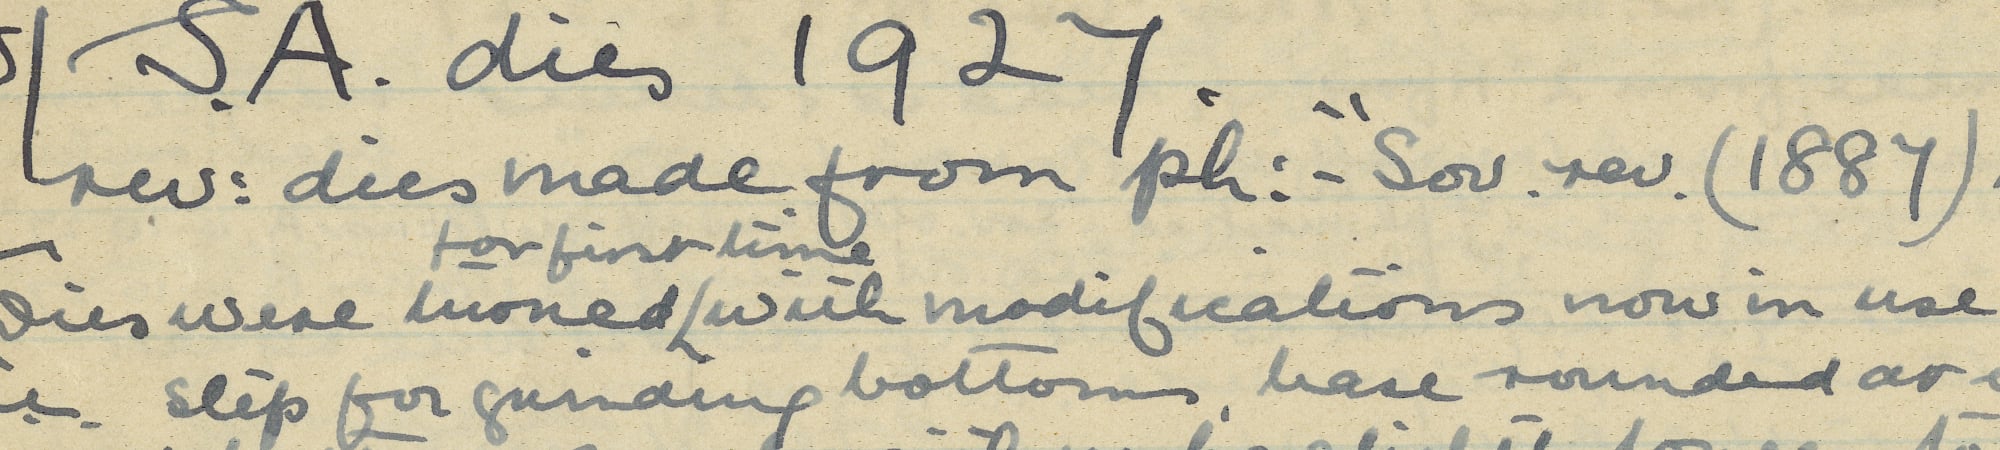 S.A. dies 1927.
rev: dies made from ph:- "Sov. rev. (1887).
for first time
Dies were turned with modifications now in use
i.e. step for grinding bottoms, base rounded at